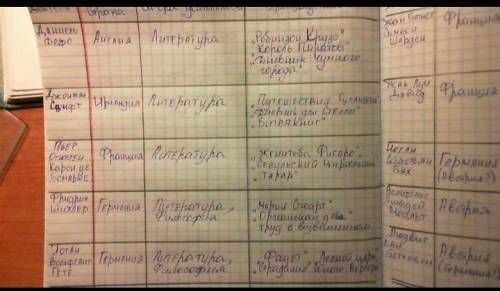 страна
Даниель
Дефо
Англия
Литература
„Робинзон Крузо"
„Король Пиратов"
„Дневник чумного
города"
Джонатан
Свифт
Ирландия
Литература
„Путешествия Гулливера"
„Дневник для Стеллы"
„Битва книг"
Пьер
Огюстен
Карон де
Бомарше
Франция
Литература
„Женитьба Фигаро",
„Севильский цирюльник"
„Тарар"
Фридрих
Шиллер
Германия
Литература,
Философия
„Мария Стюарт"
„Орлеанская дева"
труд о возвышенном
Иоган
Вольфганг
Гёте
Германия
Литература,
Философия
„Фауст", „Лесной царь"
Жан Батист
Симеон
Шарден
Франция
Жак Луи
Давид
Франция
Иоган
Себастьян
Бах
Германия
(Австрия?)
Вольфганг
Амадей
Моцарт
Австрия
Людвиг
ван
Бетховен
Австрия
(Германия?)